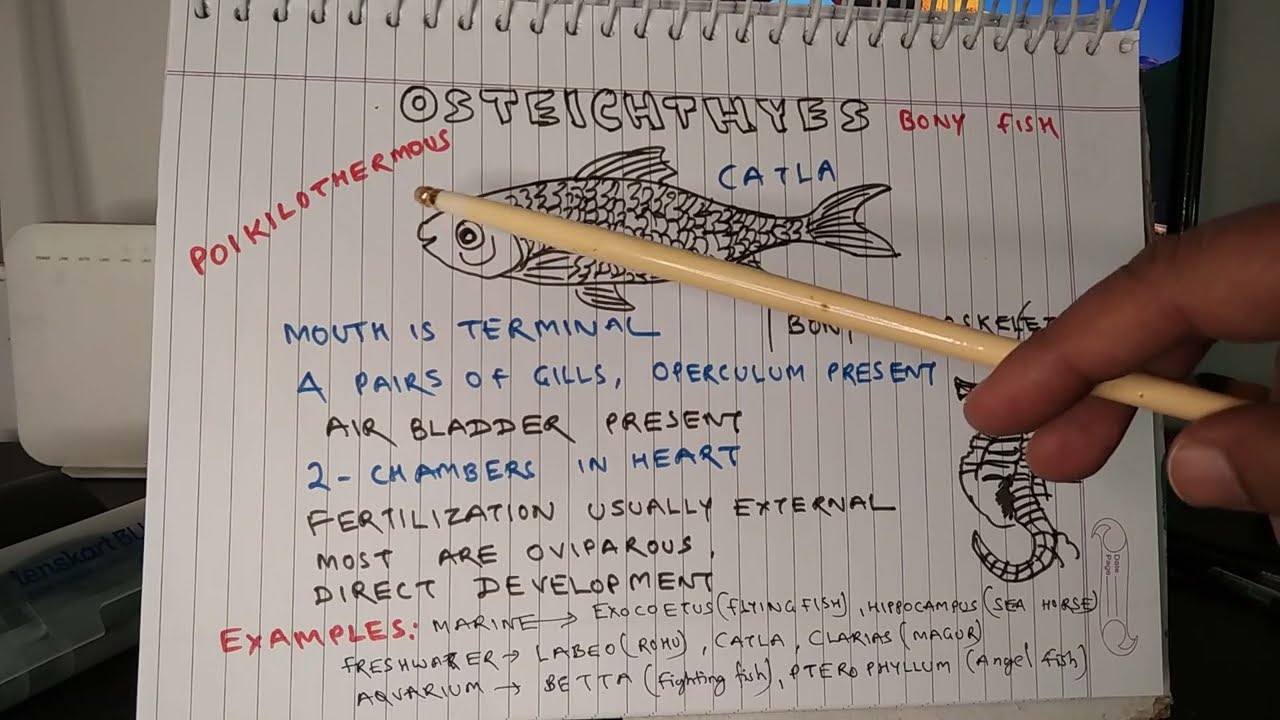 OSTEICHTHYES BONY FISH
POIKILOTHERMOUS
CATLA
MOUTH IS TERMINAL
BONY
4 PAIRS OF GILLS, OPERCULUM PRESENT
AIR BLADDER PRESENT
2- CHAMBERS IN HEART
FERTILIZATION USUALLY EXTERNAL
MOST ARE OVIPAROUS,
DIRECT DEVELOPMENT
EXAMPLES: MARINE → EXOCOETUS (FLYING FISH), HIPPOCAMPUS (SEA HORSE)
FRESHWATER → LABEO (ROHU), CATLA, CLARIAS (MAGUR)
AQUARIUM → BETTA (Fighting fish), PTEROPHYLLUM (Angel fish)
Date
Page
lenskart